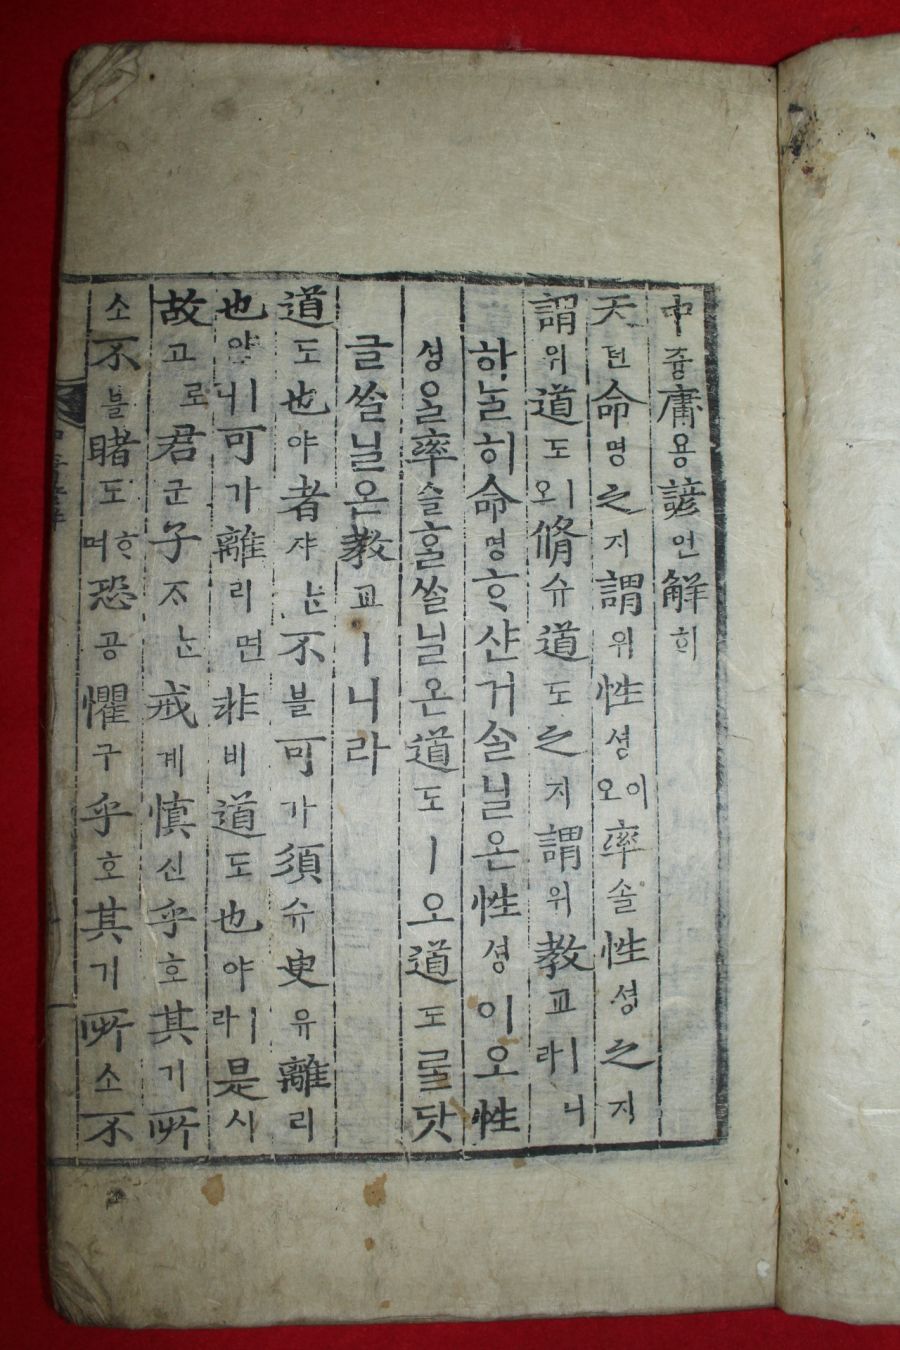 中즁庸용諺언解ᄒᆡ
天텬命명之지謂위性셩이오率솔性셩之지
謂위道도ㅣ오脩슈道도之지謂위教교ㅣ라니
하ᄂᆞᆯ히命명ᄒᆞ샨거ᄉᆞᆯ닐온性셩이오性
셩을率솔홀ᄊᆞᆯ닐온道도ㅣ오道도ᄅᆞᆯ닷
글ᄊᆞᆯ닐온教교ㅣ니라
道도也야者쟈ᄂᆞᆫ不블可가須슈臾유離리
也야ㅣ니可가離리면非비道도也야ㅣ라是시
故고로君군子ᄌᆞᄂᆞᆫ戒계慎신乎호其기所
소不블睹도ᄒᆞ며恐공懼구乎호其기所소不